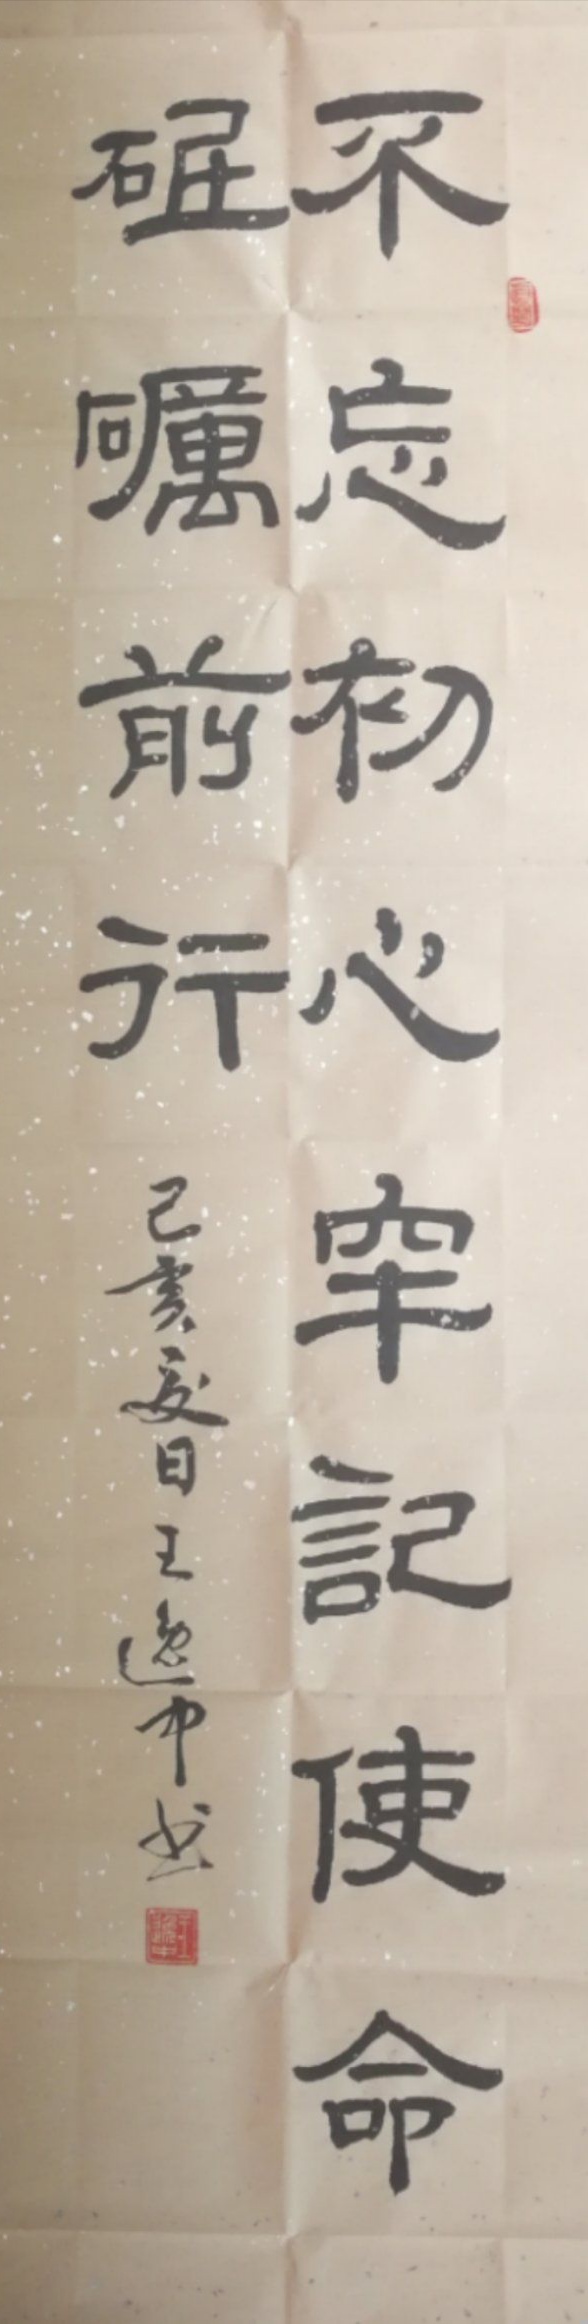 不忘初心牢記使命
砥礪前行
己亥夏日王逸中书